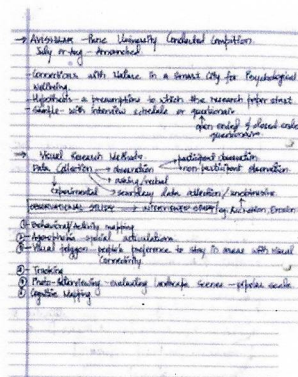 → AVISHKAR - Pune University Conducted Competition.
July or Aug - Announced
- Connections with Nature in a Smart City for Psychological
Wellbeing.
- Hypothesis - a presumption to which the research paper start
- Sample - with interview schedule or
open ended & closed ended
→ Visual Research Methods.
Data Collection → observation → participant observation
non participant observation
→ asking/verbal
Experimental → secondary data collection /
OBSERVATIONAL STUDY INTERVIEWED STUDY
① Behavioral/Activity mapping
② spatial articulations
③ Visual polygon - people's preference to stay in areas with visual
Connectivity.
④ Tracking
⑤ Photo-Interviewing - evaluating landscape scenes - scale
⑥ Cognitive Mapping